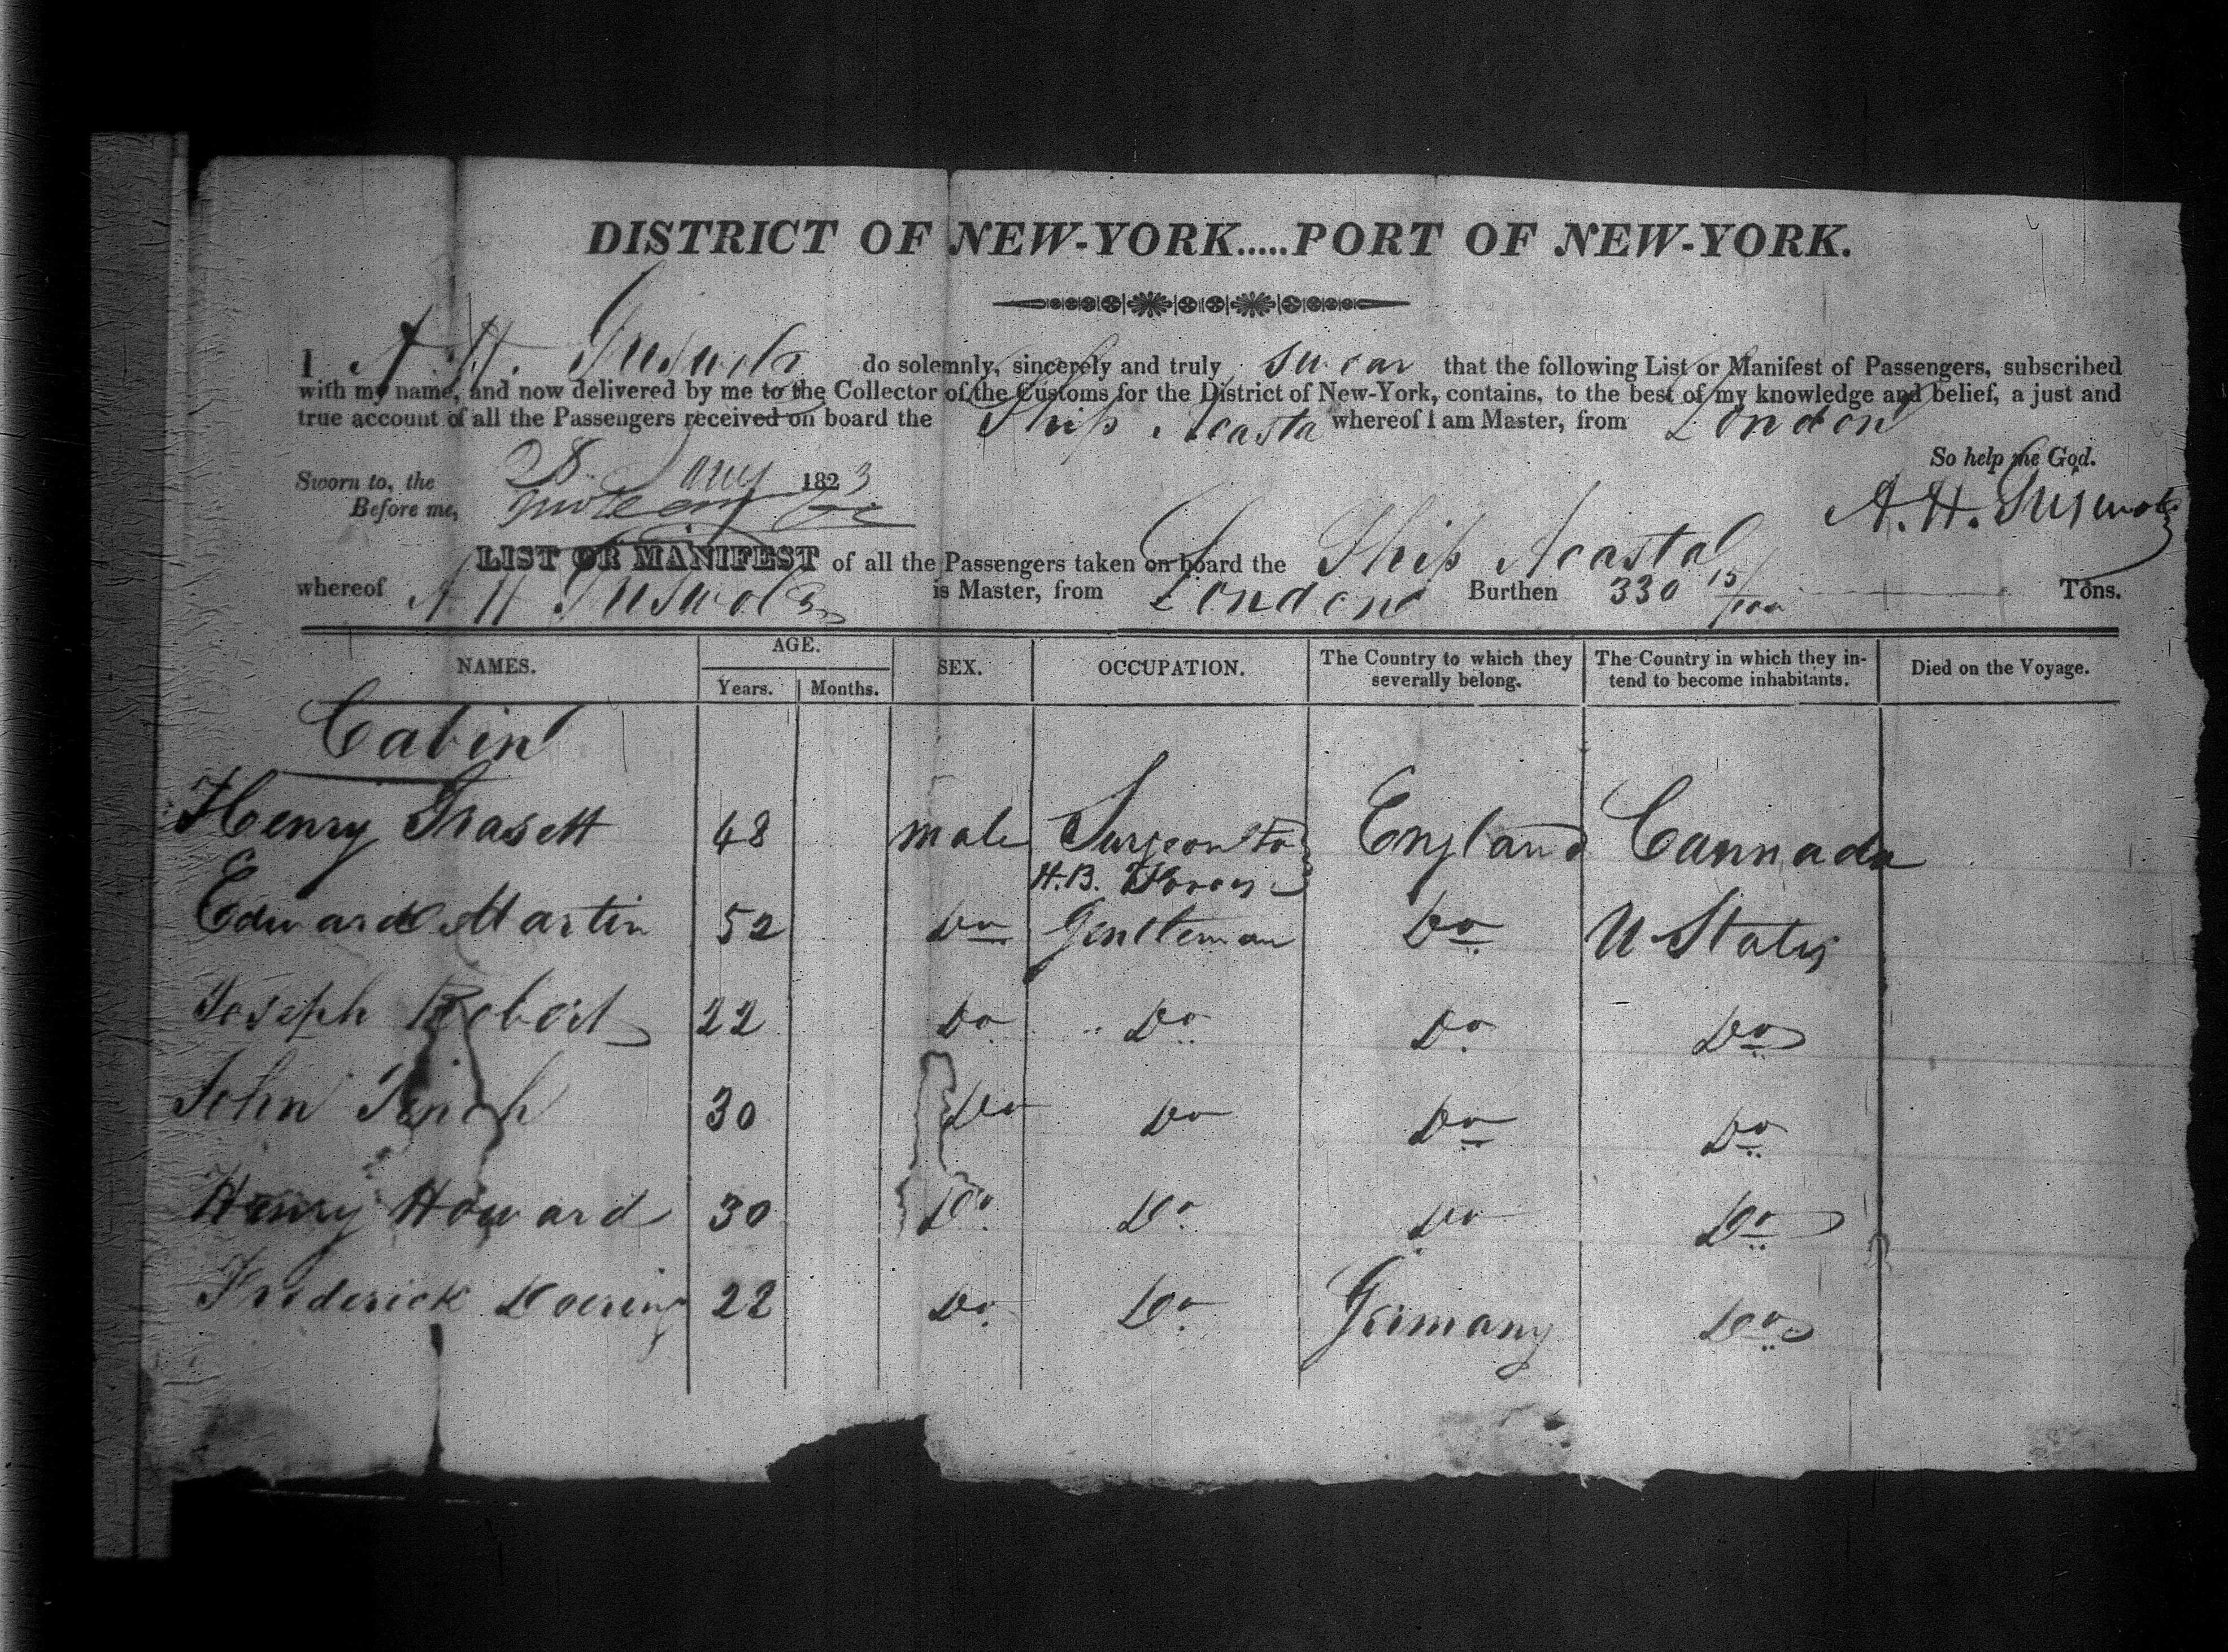 DISTRICT OF NEW-YORK.....PORT OF NEW-YORK.
I A. H. Griswold do solemnly, sincerely and truly swear that the following List or Manifest of Passengers, subscribed
with my name, and now delivered by me to the Collector of the Customs for the District of New-York, contains, to the best of my knowledge and belief, a just and
true account of all the Passengers received on board the Ship Acasta whereof I am Master, from London
So help me God.
Sworn to, the 28 1823
Before me,
A. H. Griswold
LIST OR MANIFEST of all the Passengers taken on board the Ship Acasta
whereof A H Griswold is Master, from London Burthen 330 15/100 Tons.
NAMES. AGE. Years. Months. SEX. OCCUPATION. The Country to which they severally belong. The Country in which they intend to become inhabitants. Died on the Voyage.
Cabin
Henry Grasett 48 male Surgeon to England Cannada
H.B.
Edward Martin 52 Do Gentleman Do U States
Joseph Robert 22 Do Do Do Do
John Finch 30 Do Do Do Do
Henry Howard 30 Do Do Do Do
Frederick Doering 22 Do Do Germany Do